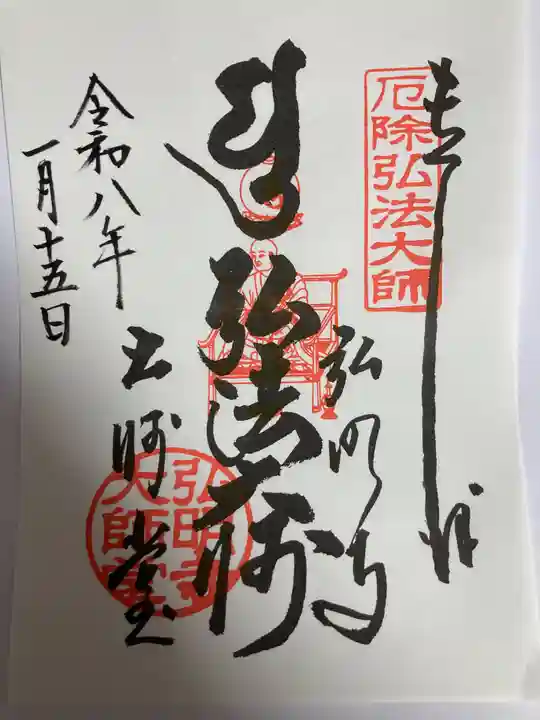 奉拝
厄除弘法大師
弘法大師
弘明寺
大師堂
弘明寺
大師堂
令和八年
一月十五日